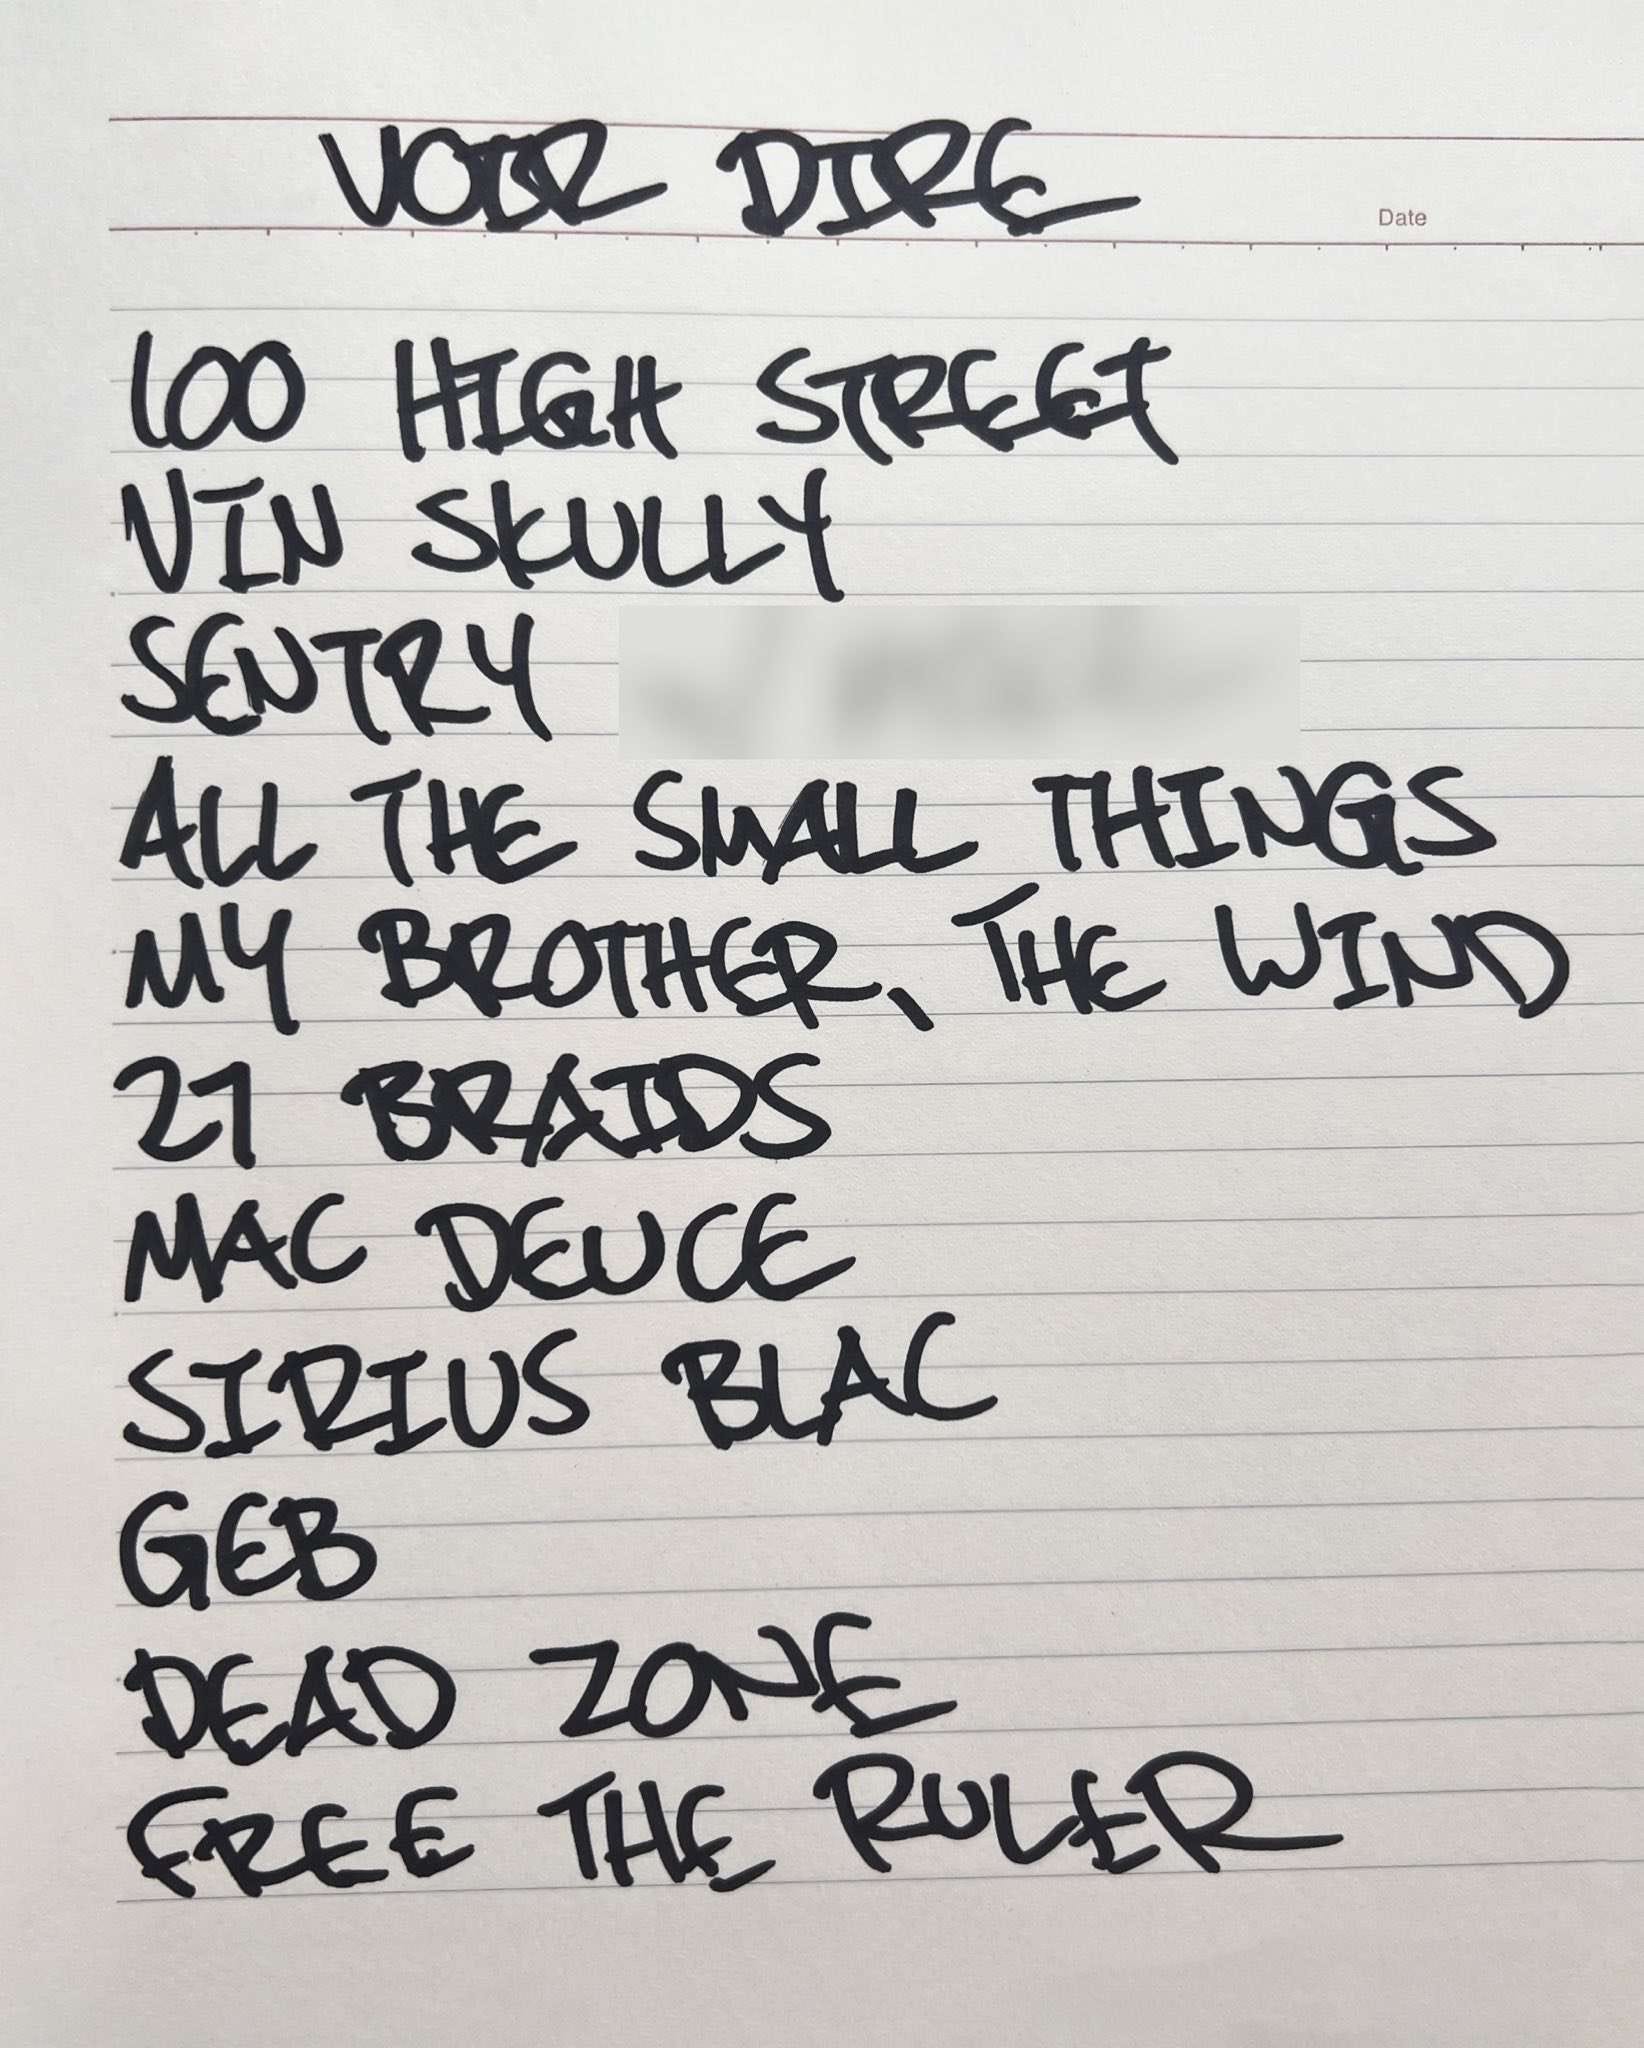 VOIR DIRE
Date
100 HIGH STREET
VIN SKULLY
SENTRY
ALL THE SMALL THINGS
MY BROTHER, THE WIND
27 BRAIDS
MAC DEUCE
SIRIUS BLAC
GEB
DEAD ZONE
FREE THE RULER